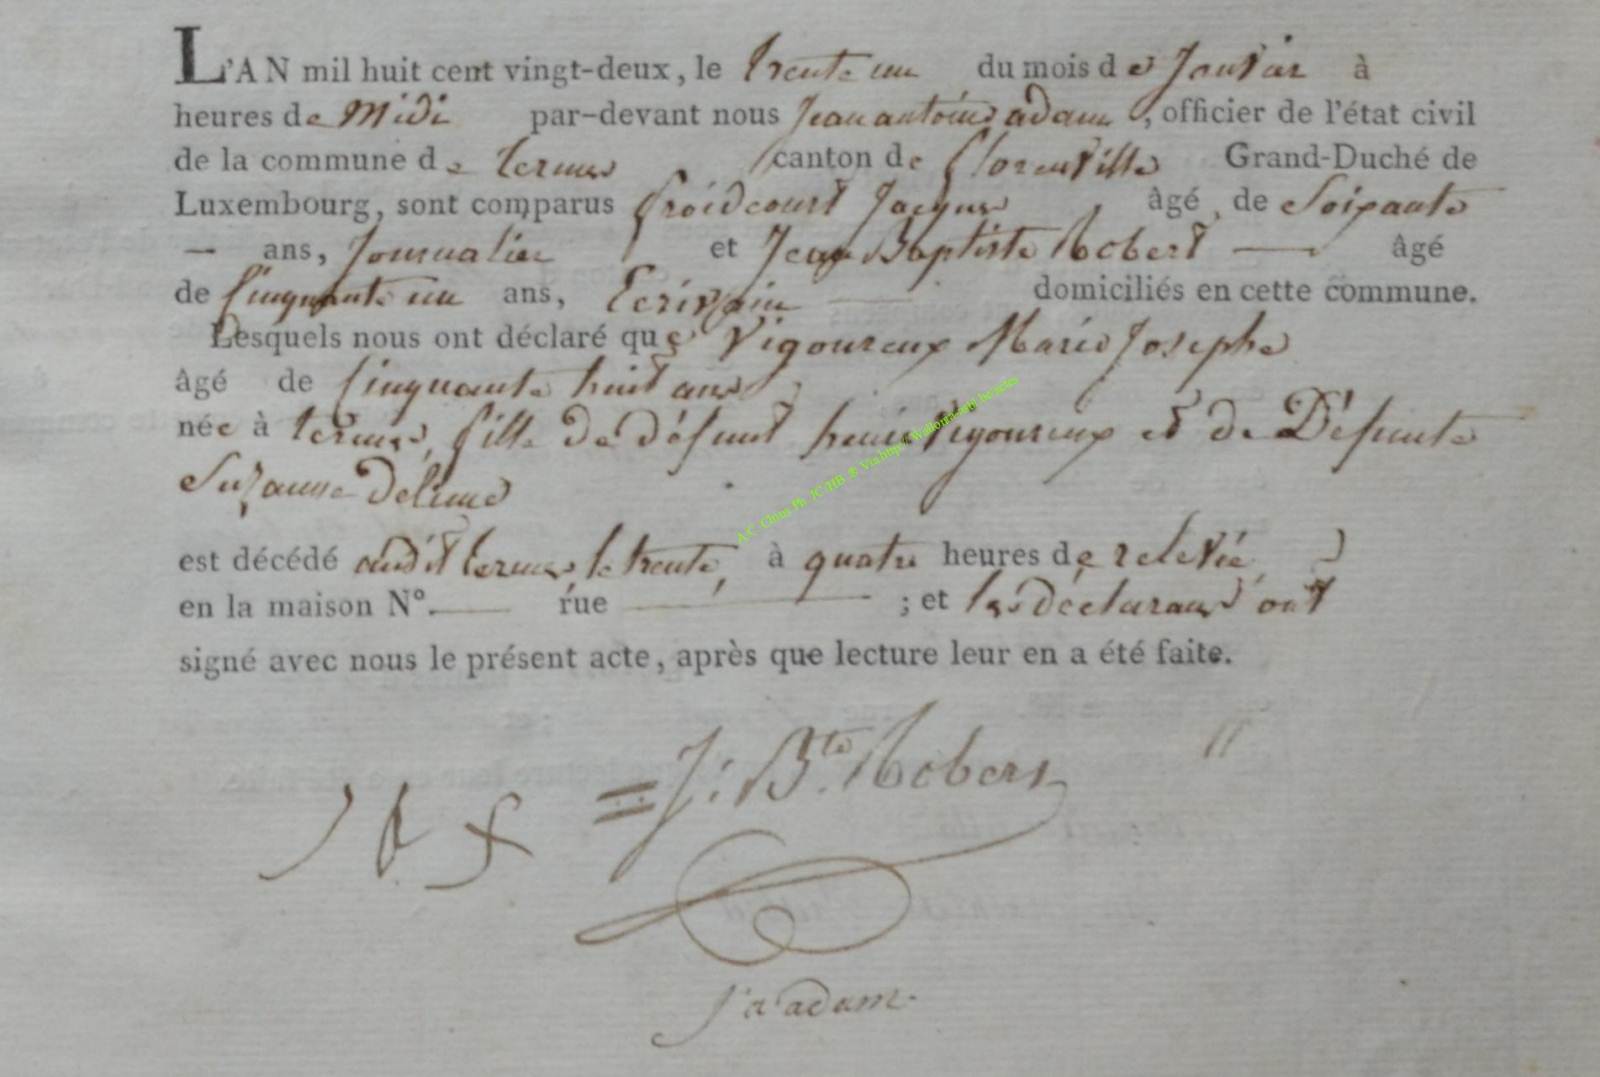 L'AN mil huit cent vingt-deux, le trente un du mois de Janvier à
heures de Midi par-devant nous Jean antoine adam, officier de l'état civil
de la commune de termes canton de florenville Grand-Duché de
Luxembourg, sont comparus froidcourt Jacques âgé de Soixante
— ans, Journalier et Jean Baptiste Robert — âgé
de Cinquante un ans, Ecrivain — domiciliés en cette commune.
Lesquels nous ont déclaré que Vigoureux Marie Josephe
âgé de Cinquante huit ans
née à termes, fille de défunt henri Vigoureux et de Défunte
Suzanne Delime
est décédé audit termes, le trente, à quatre heures de relevée
en la maison N°. — rue — ; et les déclarans ont
signé avec nous le présent acte, après que lecture leur en a été faite.
J: Bte. Robert
J a adam.